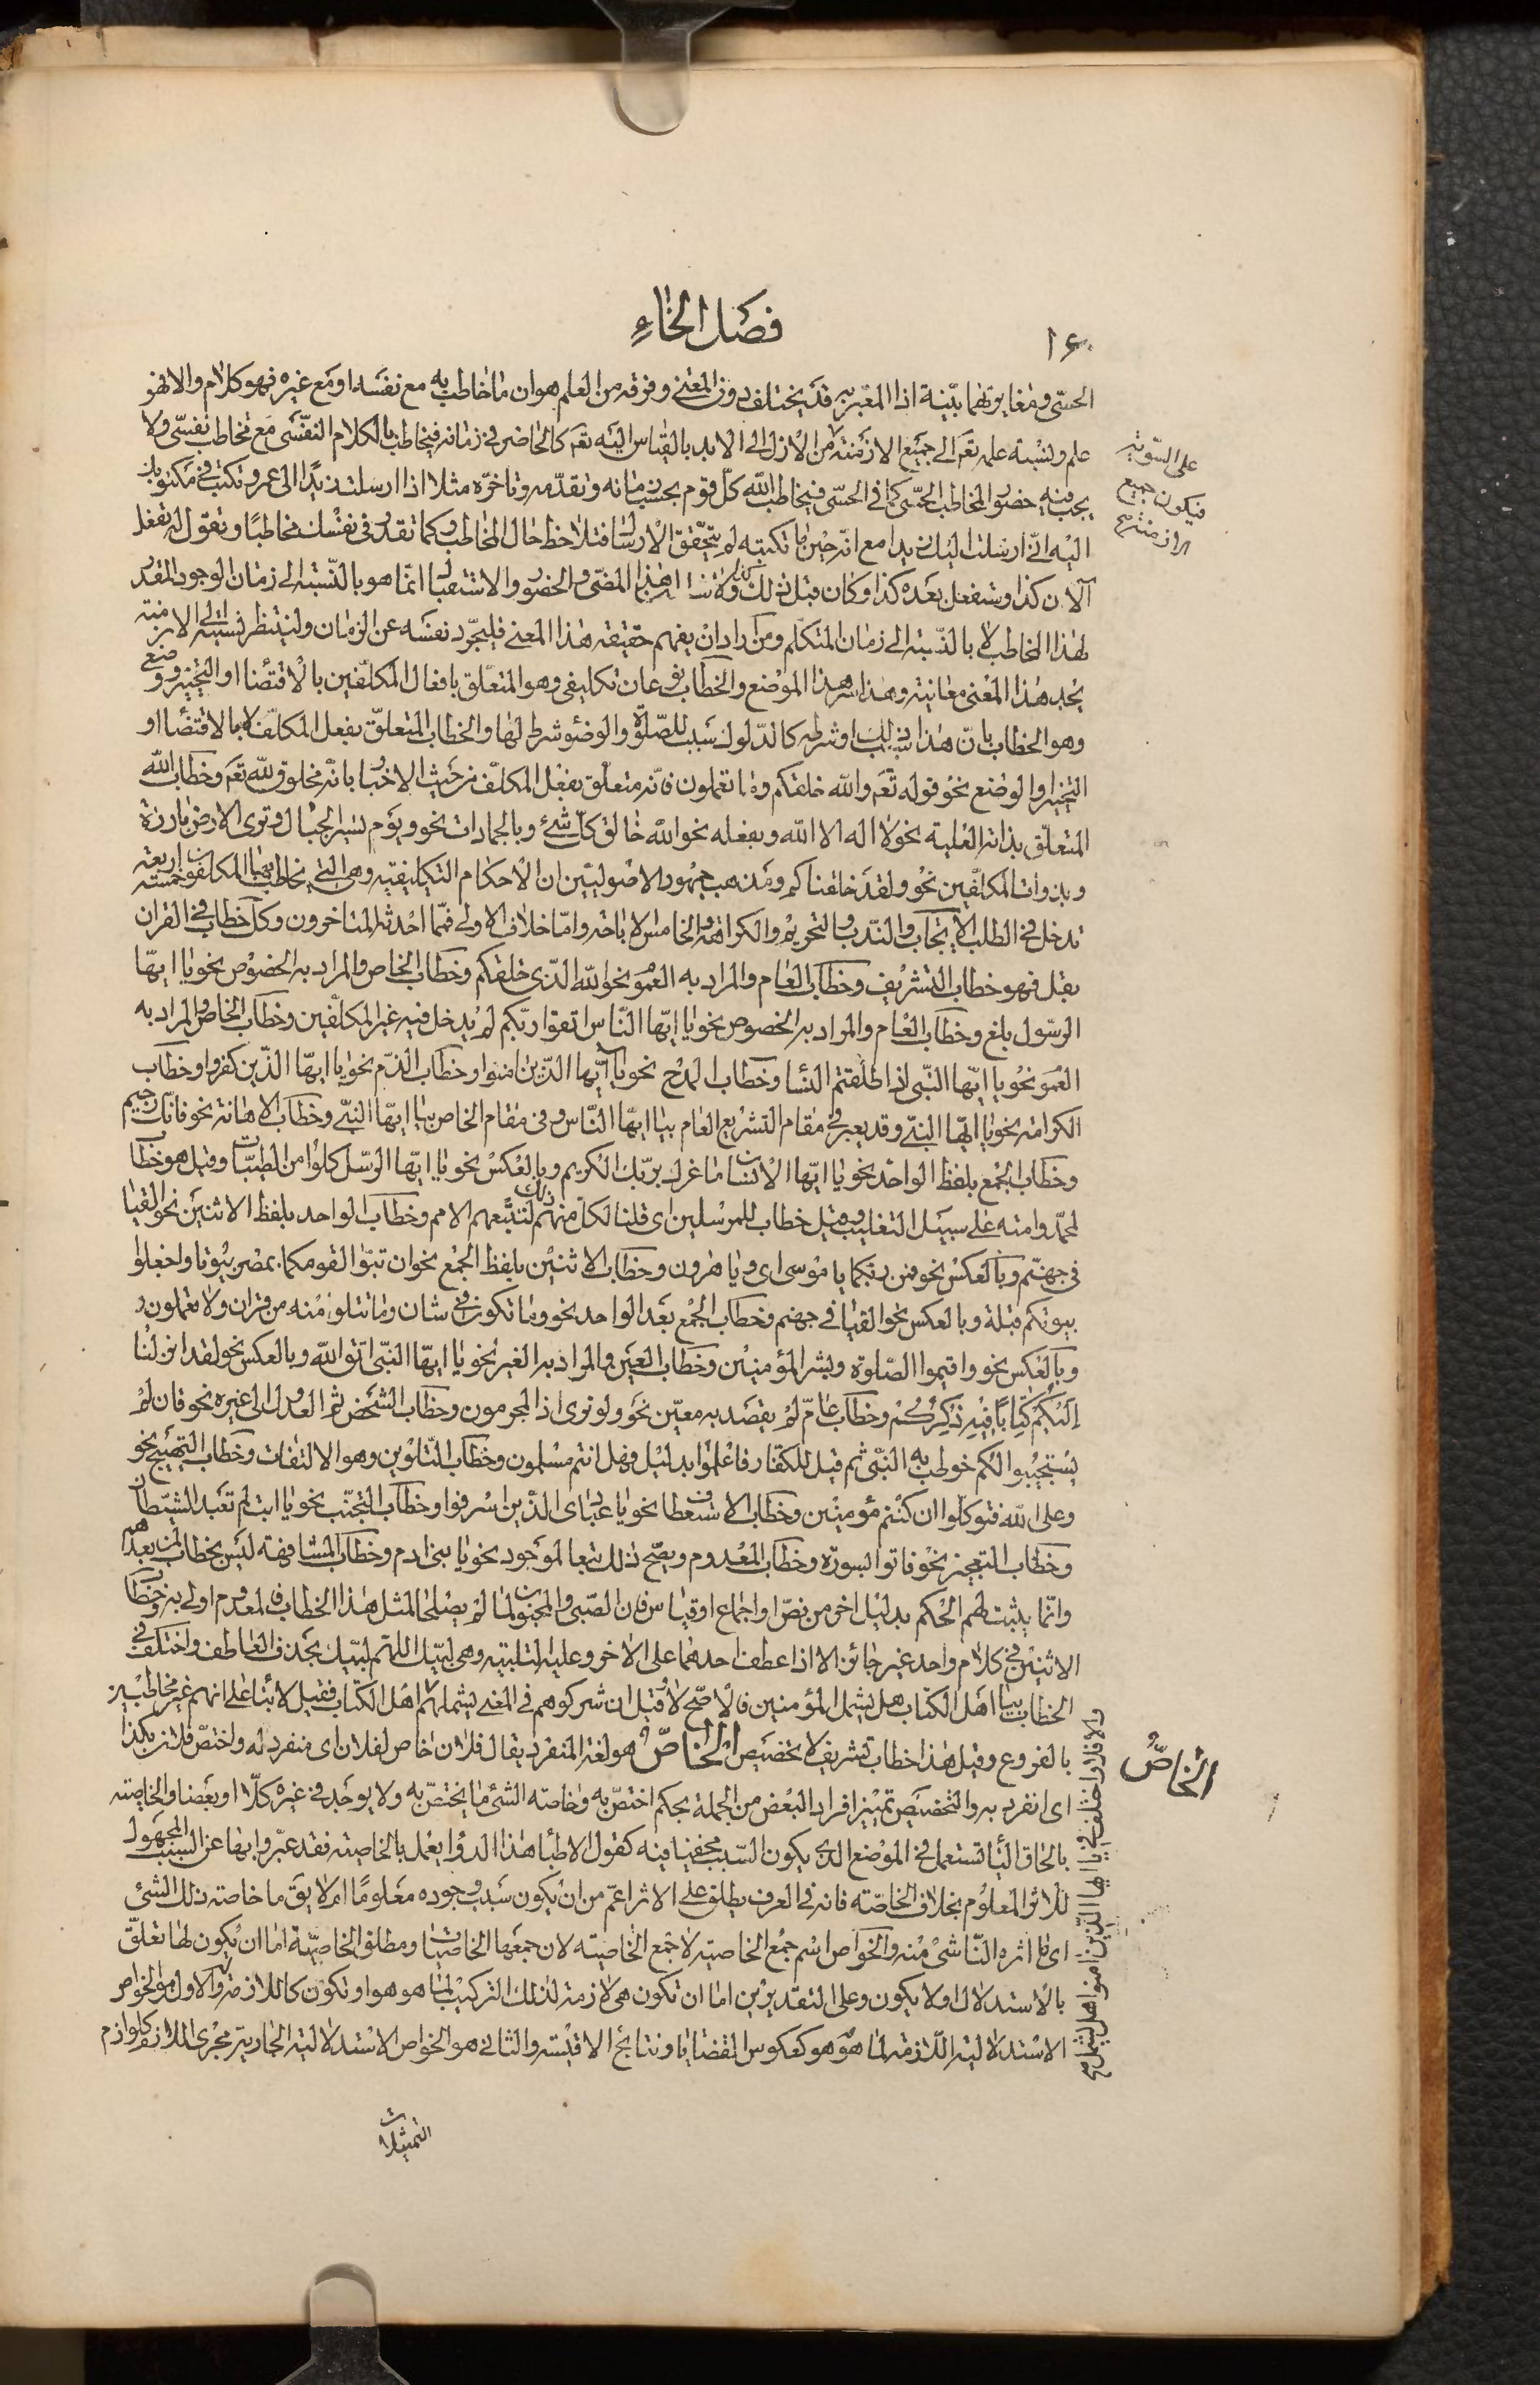 ١٦٠
فصل الخاء
الحسّى ومغايرتهما بيّنة اذا المعبّر به قد يختلف دون المعنى وفرقه من العلم هو ان ما خاطب به مع نفسه او مع غيره فهو كلام والا فهو
علم ونسبة علمه تعم الى جميع الازمنة من الازل الى الابد بالقياس اليه تعم كالحاضر فى زمانه فيخاطب بالكلام النفسى مع مخاطب نفسى ولا
على السوية
فيكون جميع
الازمنة صح
يجب فيه حضور المخاطب الحسّى كما فى الحسّى فيخاطب الله كلّ قوم بحسب زمانه وتقدّمه وتاخّره مثلا اذا ارسلت زيدًا الى عمرو تكتب فى مكتوبك
اليه انّى ارسلت اليك زيدا مع انّه حين ما تكتبه لم يتحقّق الارسال فتلاحظ حال المخاطب وكما تقدر فى نفسك مخاطبًا وتقول له تفعل
الآن كذا وستفعل بعده كذا وكان قبل ذلك كذا ولا شك ان هذا المضى والحضور والاستقبال انّما هو بالنّسبة الى زمان الوجود المقدر
لهذا المخاطب لا بالنّسبة الى زمان المتكلّم ومن اراد ان يفهم حقيقة هذا المعنى فليجّرد نفسه عن الزمان ولينتظر نسبته الى الازمنة
يجد هذا المعنى معاينة وهذا سر هذا الموضع والخطاب نوعان تكليفى وهو المتعلّق بافعال المكلّفين بالاقتضاء او التخيير ووضعى
وهو الخطاب بانّ هذا سبب ذلك او شرطه كالدلوك سبب للصّلوة والوضوء شرط لها والخطاب المتعلّق بفعل المكلّف لا بالاقتضاء او
التخيير او الوضع نحو قوله تعم والله خلقكم وما تعملون فانّه متعلّق بفعل المكلّف من حيث الاخبار بانّه مخلوق لله تعم وخطاب الله
المتعلّق بذاته العلية نحو لا اله الا الله وبفعله نحو الله خالق كلّ شئ وبالجمادات نحو ويوم نسير الجبال وترى الارض بارزة
وبذوات المكلّفين نحو ولقد خلقناكم ومذهب جمهور الاصوليّين ان الاحكام التكليفيّة وهى التى يخاطب بها المكلفون خمسة اربعة
تدخل فى الطلب الايجاب والندب والتحريم والكراهة والخامس الاباحة وامّا خلاف الاولى فممّا احدثه المتاخرون وكلّ خطاب فى القران
بقل فهو خطاب التشريف وخطاب العام والمراد به العموم نحو الله الذى خلقكم وخطاب الخاص والمراد به الخصوص نحو يا ايها
الرسول بلغ وخطاب العام والمراد به الخصوص نحو يا ايها النّاس اتقوا ربّكم لم يدخل فيه غير المكلّفين وخطاب الخاص والمراد به
العموم نحو يا ايها النّبى اذا طلقتم النّساء وخطاب المدح نحو يا ايّها الذين امنوا وخطاب الذم نحو يا ايها الذين كفروا وخطاب
الكرامة نحو يا ايها النّبى وقد يعبر فى مقام التشريع العام بيا ايها النّاس وفى مقام الخاص بيا ايها النّبى وخطاب الاهانة نحو فانك رجيم
وخطاب الجمع بلفظ الواحد نحو يا ايها الانسان ما غرك بربّك الكريم وبالعكس نحو يا ايها الرسل كلوا من الطيّبات وقيل هو خطاب
لمحمّد وامته على سبيل التغليب وقيل خطاب للمرسلين اى قلنا لكل منهم ذلك لتتبّعهم الامم وخطاب الواحد بلفظ الاثنين نحو القيا
فى جهنّم وبالعكس نحو فمن ربكما يا موسى اى ويا هرون وخطاب الاثنين بلفظ الجمع نحو ان تبوّا لقومكما بمصر بيوتا واجعلوا
بيوتكم قبلة وبالعكس نحو القيا فى جهنم وخطاب الجمع بعد الواحد نحو وما تكون فى شان وما تتلو منه من قران ولا تعملون
وبالعكس نحو واقيموا الصّلوة وبشر المؤمنين وخطاب العين والمراد به الغير نحو يا ايها النّبى اتق الله وبالعكس نحو لقد انزلنا
اليكم كتابًا فيه ذكركم وخطاب عامّ لم يقصد به معيّن نحو ولو ترى اذ المجرمون وخطاب الشخص ثم العدول الى غيره نحو فان لم
يستجيبوا لكم خوطب به النّبى ثم قيل للكفار فاعلموا بدليل فهل انتم مسلمون وخطاب التلوين وهو الالتفات وخطاب التهييج نحو
وعلى الله فتوكلوا ان كنتم مؤمنين وخطاب الاستعطاف نحو يا عبادى الذين اسرفوا وخطاب التجنّب نحو يا ابت لم تعبد الشيطان
وخطاب التعجيز نحو فاتوا بسورة وخطاب المعدوم ويصحّ ذلك تبعا لموجود نحو يا بنى ادم وخطاب المشافهة ليس بخطاب لمن بعدهم
وانّما يثبت لهم الحكم بدليل اخر من نصّ او اجماع او قياس فان الصّبى والمجنون لما لم يصلحا لمثل هذا الخطاب فالمعدوم اولى به وخطاب
الاثنين فى كلام واحد غير جائز الا اذا عطف احدهما على الاخر وعليه التلبية وهى لبّيك اللهّم لبّيك بحذف العاطف واختلف فى
الخطاب بيا اهل الكتاب هل يشمل المؤمنين فالاصّح لا وقيل ان شركوهم فى المعنى يشملهم
والا فلا واختلف فى يا ايها الذين امنوا هل يشمل صح
اهل الكتاب فقيل لا بناء على انهم غير مخاطبين
الخاصّ
بالفروع وقيل هذا خطاب تشريف لا تخصيص الخاصّ هو لغة المنفرد يقال فلان خاص لفلان اى منفرد له واختصّ فلان بكذا
اى انفرد به والتخصيص تمييز افراد البعض من الجملة بحكم اختصّ به وخاصة الشئ ما يختصّ به ولا يوجد فى غيره كلّا او بعضا والخاصية
بالحاق الياء تستعمل فى الموضع الذى يكون السّبب مخفيا فيه كقول الاطباء هذا الدواء يعمل بالخاصية فقد عبّروا بها عن السبب المجهول
للاثر المعلوم بخلاف الخاصّة فانه فى العرف يطلق على الاثر اعمّ من ان يكون سبب وجوده معلومًا ام لا يق ما خاصة ذلك الشئ
اى ما اثره النّاشئ منه والخواص اسم جمع الخاصية لا جمع الخاصية لان جمعها الخاصيات ومطلق الخاصية اما ان يكون لها تعلّق
بالاستدلال اولا يكون وعلى التقديرين اما ان تكون هى لازمة لذلك التركيب لما هو هو او تكون كاللازمة له والاول هو الخواص
الاستدلالية اللازمة لما هو هو كعكوس القضايا ونتايج الاقيسة والثانى هو الخواص الاستدلالية الجارية مجرى اللازم كلوازم
التمثيلات